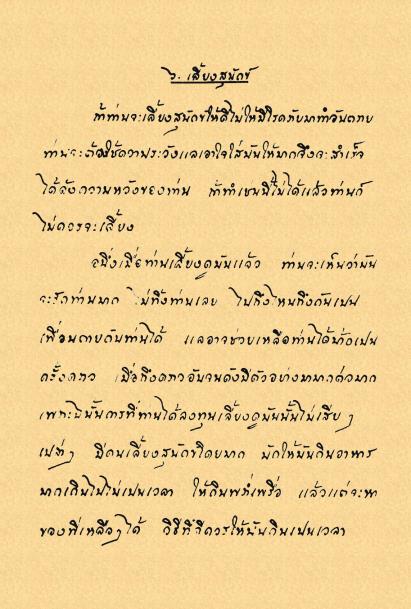 ๖. เลี้ยงสุนัขฃ์
ถ้าท่านจะเลี้ยงสุนัขให้ดีไม่ให้มีโรคภัยมาทำอันตลาย
ท่านจะต้องใช้ความระวังแลเอาใจใส่มันให้มากจึงจะสำเร็จ
ได้ดังความหวังของท่าน ถ้าทำเช่นนี้ไม่ได้แล้วท่านก็
ไม่ควรจะเลี้ยง
อนึ่งเมื่อท่านเลี้ยงดูมันแล้ว ท่านจะเห็นว่ามัน
จะรักท่านมาก ไม่ทิ้งท่านเลย ไปถึงไหนถึงกันเปน
เพื่อนตายกับท่านได้ แลอาจช่วยเหลือท่านได้บ้างเปน
ครั้งคราว เมื่อถึงคราวอับจนดังมีตัวอย่างมามากต่อมาก
เพราะฉะนั้นการที่ท่านได้ลงทุนเลี้ยงดูมันนั้นไม่เสียๆ
เปล่าๆ มีคนเลี้ยงสุนัขโดยมาก มักให้มันกินอาหาร
มากเกินไปไม่เปนเวลา ให้กินพร่ำเพรื่อ แล้วแต่จะหา
ของที่เหลือๆได้ วิธีที่ดีควรให้มันกินเปนเวลา